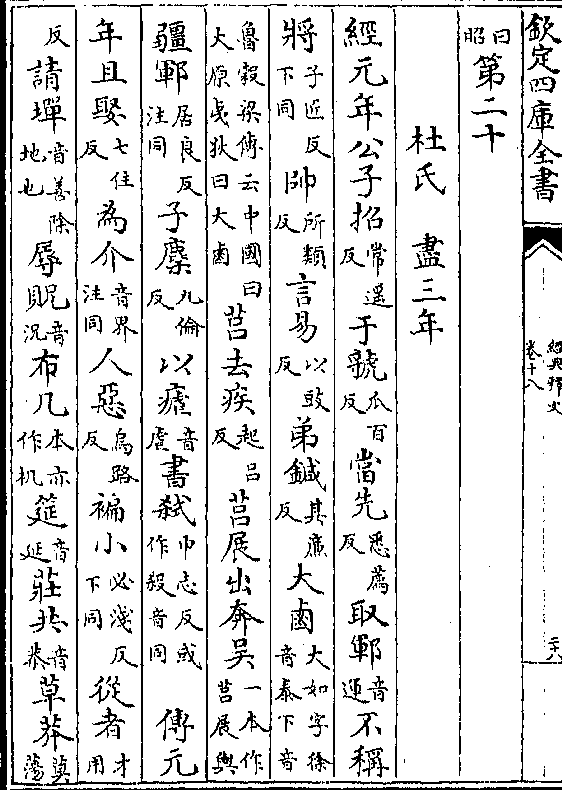 欽定四庫全書
經典釋文
卷十八
二十八
昭曰第二十
杜氏 盡三年
經元年公子招常遥反于虢瓜百反當先悉薦反取鄆音運不稱
將子近反下同帥所類反言易以豉反弟鍼其廉反大鹵大如字徐音泰下音
魯穀梁傳云中國曰大原夷狄曰大鹵莒去疾起吕反莒展出奔吳一本作莒展輿
疆鄆居良反注同子麇九倫反以瘧音虐書弑巾志反或作殺音同 傳元
年且娶七住反為介音界注同人惡烏路反褊小必淺反下同從者才用
反請墠音善除地也辱貺音况布几本亦作机筵音延莊共音恭草莽莫蕩